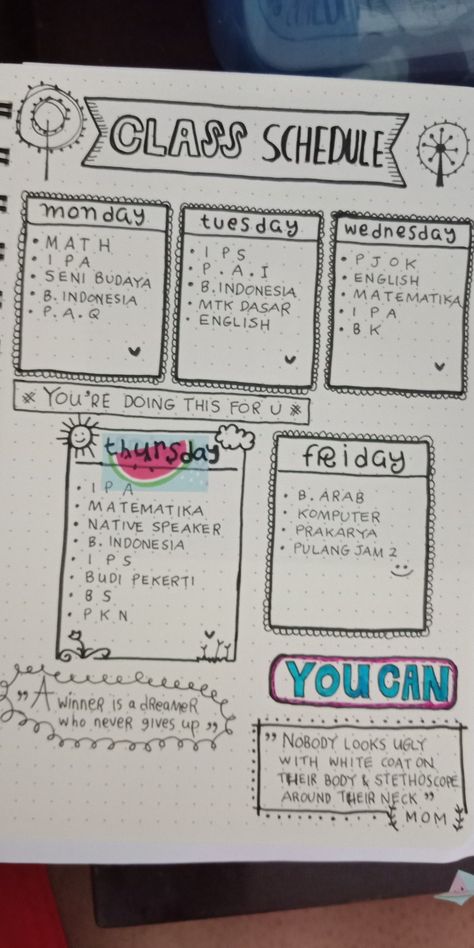 CLASS SCHEDULE
monday
• MATH
• IPA
• SENI BUDAYA
• B. INDONESIA
• P.A.Q
tuesday
• IPS
• P.A.I
• B. INDONESIA
• MTK DASAR
• ENGLISH
wednesday
• PJOK
• ENGLISH
• MATEMATIKA
• IPA
• BK
* YOU'RE DOING THIS FOR U *
thursday
• IPA
• MATEMATIKA
• NATIVE SPEAKER
• B. INDONESIA
• IPS
• BUDI PEKERTI
• BS
• PKN
friday
• B. ARAB
• KOMPUTER
• PRAKARYA
• PULANG JAM 2
"A
WINNER IS A dREAMER
who never gives up"
YOU CAN
"NOBODY LOOKS UGLY
WITH WHITE COAT ON
THEIR BODY & STETHOSCOPE
AROUND THEIR NECK"
MOM